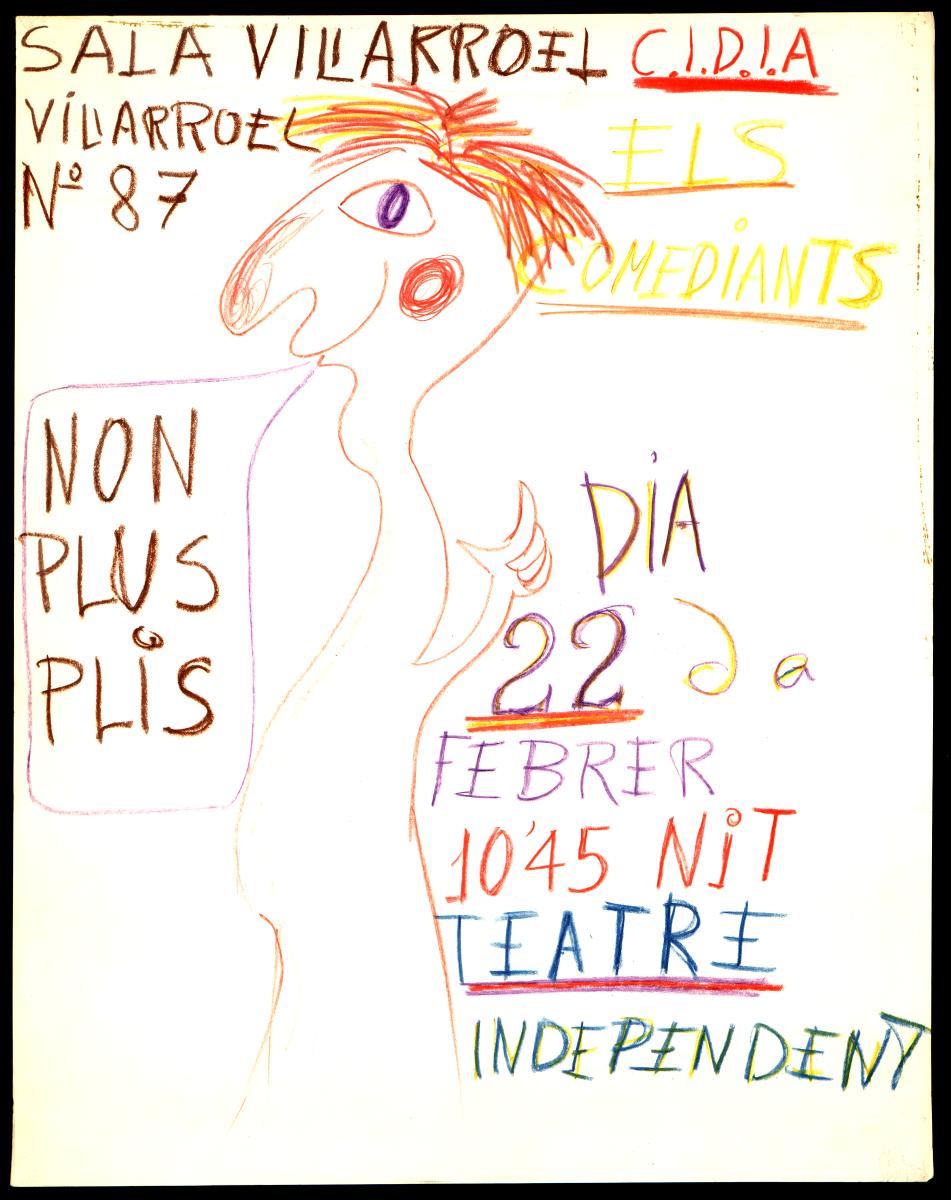 SALA VILLARROEL C.I.D.I.A
VILLARROEL
Nº 87
ELS
COMEDIANTS
NON
PLUS
PLIS
DIA
22 da
FEBRER
10'45 NIT
TEATRE
INDEPENDENT